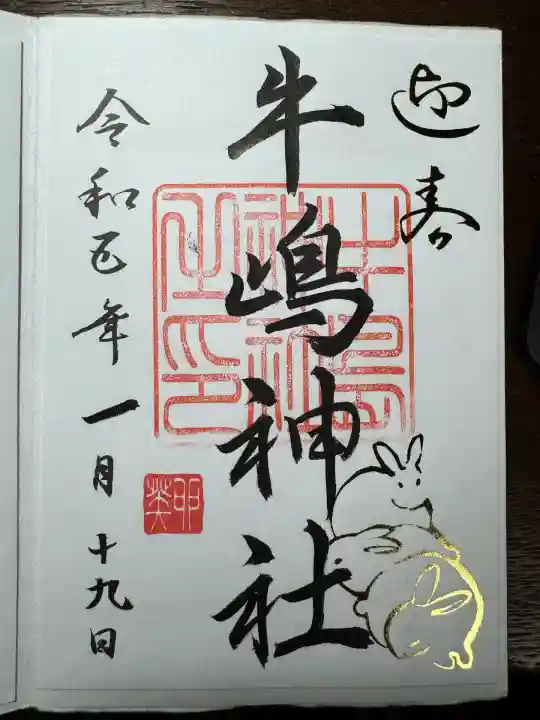 迎春
牛嶋神社
令和五年一月十九日
牛嶋
神社
之印